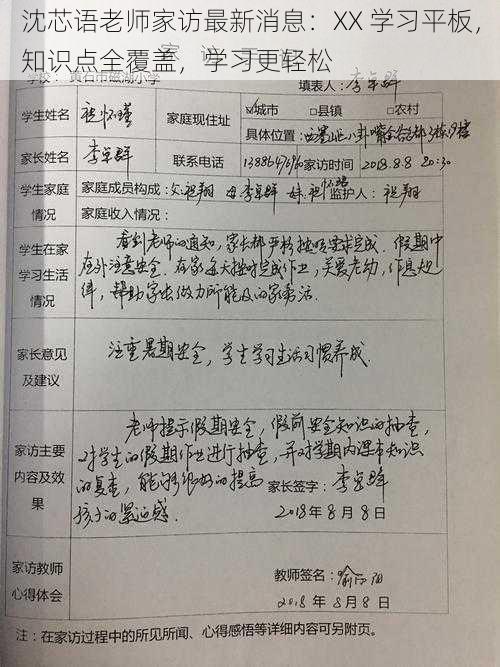 沈芯语老师家访最新消息：XX 学习平板，
知识点全覆盖，学习更轻松
学校：黄石市磁湖小学 填表人：李卓群
学生姓名 程怀瑾 家庭现住址 ☑城市 □县镇 □农村
具体位置：
家长姓名 李卓群 联系电话 家访时间 2018.8.8 20:30
学生家庭
情况
家庭成员构成：父 母 李卓群 妹 监护人：
家庭收入情况：
学生在家
学习生活
情况
看到老师的通知，家长都严格按照要求完成。假期中
在外注意安全。在家每天按时完成作业，关爱老幼，作息规
律，帮助家长做力所能及的家务活.
家长意见
及建议
注重暑期安全，学生学习生活习惯养成.
家访主要
内容及效
果
老师提示假期安全，假前安全知识的抽查，
对学生的假期作业进行抽查，并对学期内课本知识
的复查，能够很好的提高
孩子的紧迫感.
家长签字：李卓群
2018年8月8日
家访教师
心得体会
教师签名：
2018年8月8日
注：在家访过程中的所见所闻、心得感悟等详细内容可另附页。